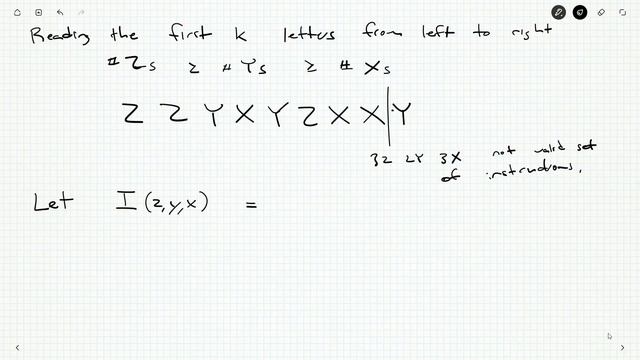 Reading the first k letters from left to right
# Zs ≥ # Ys ≥ # Xs
Z Z Y X Y Z X X | Y
3Z 2Y 3X not valid set
of instructions.
Let I (z, y, x) =